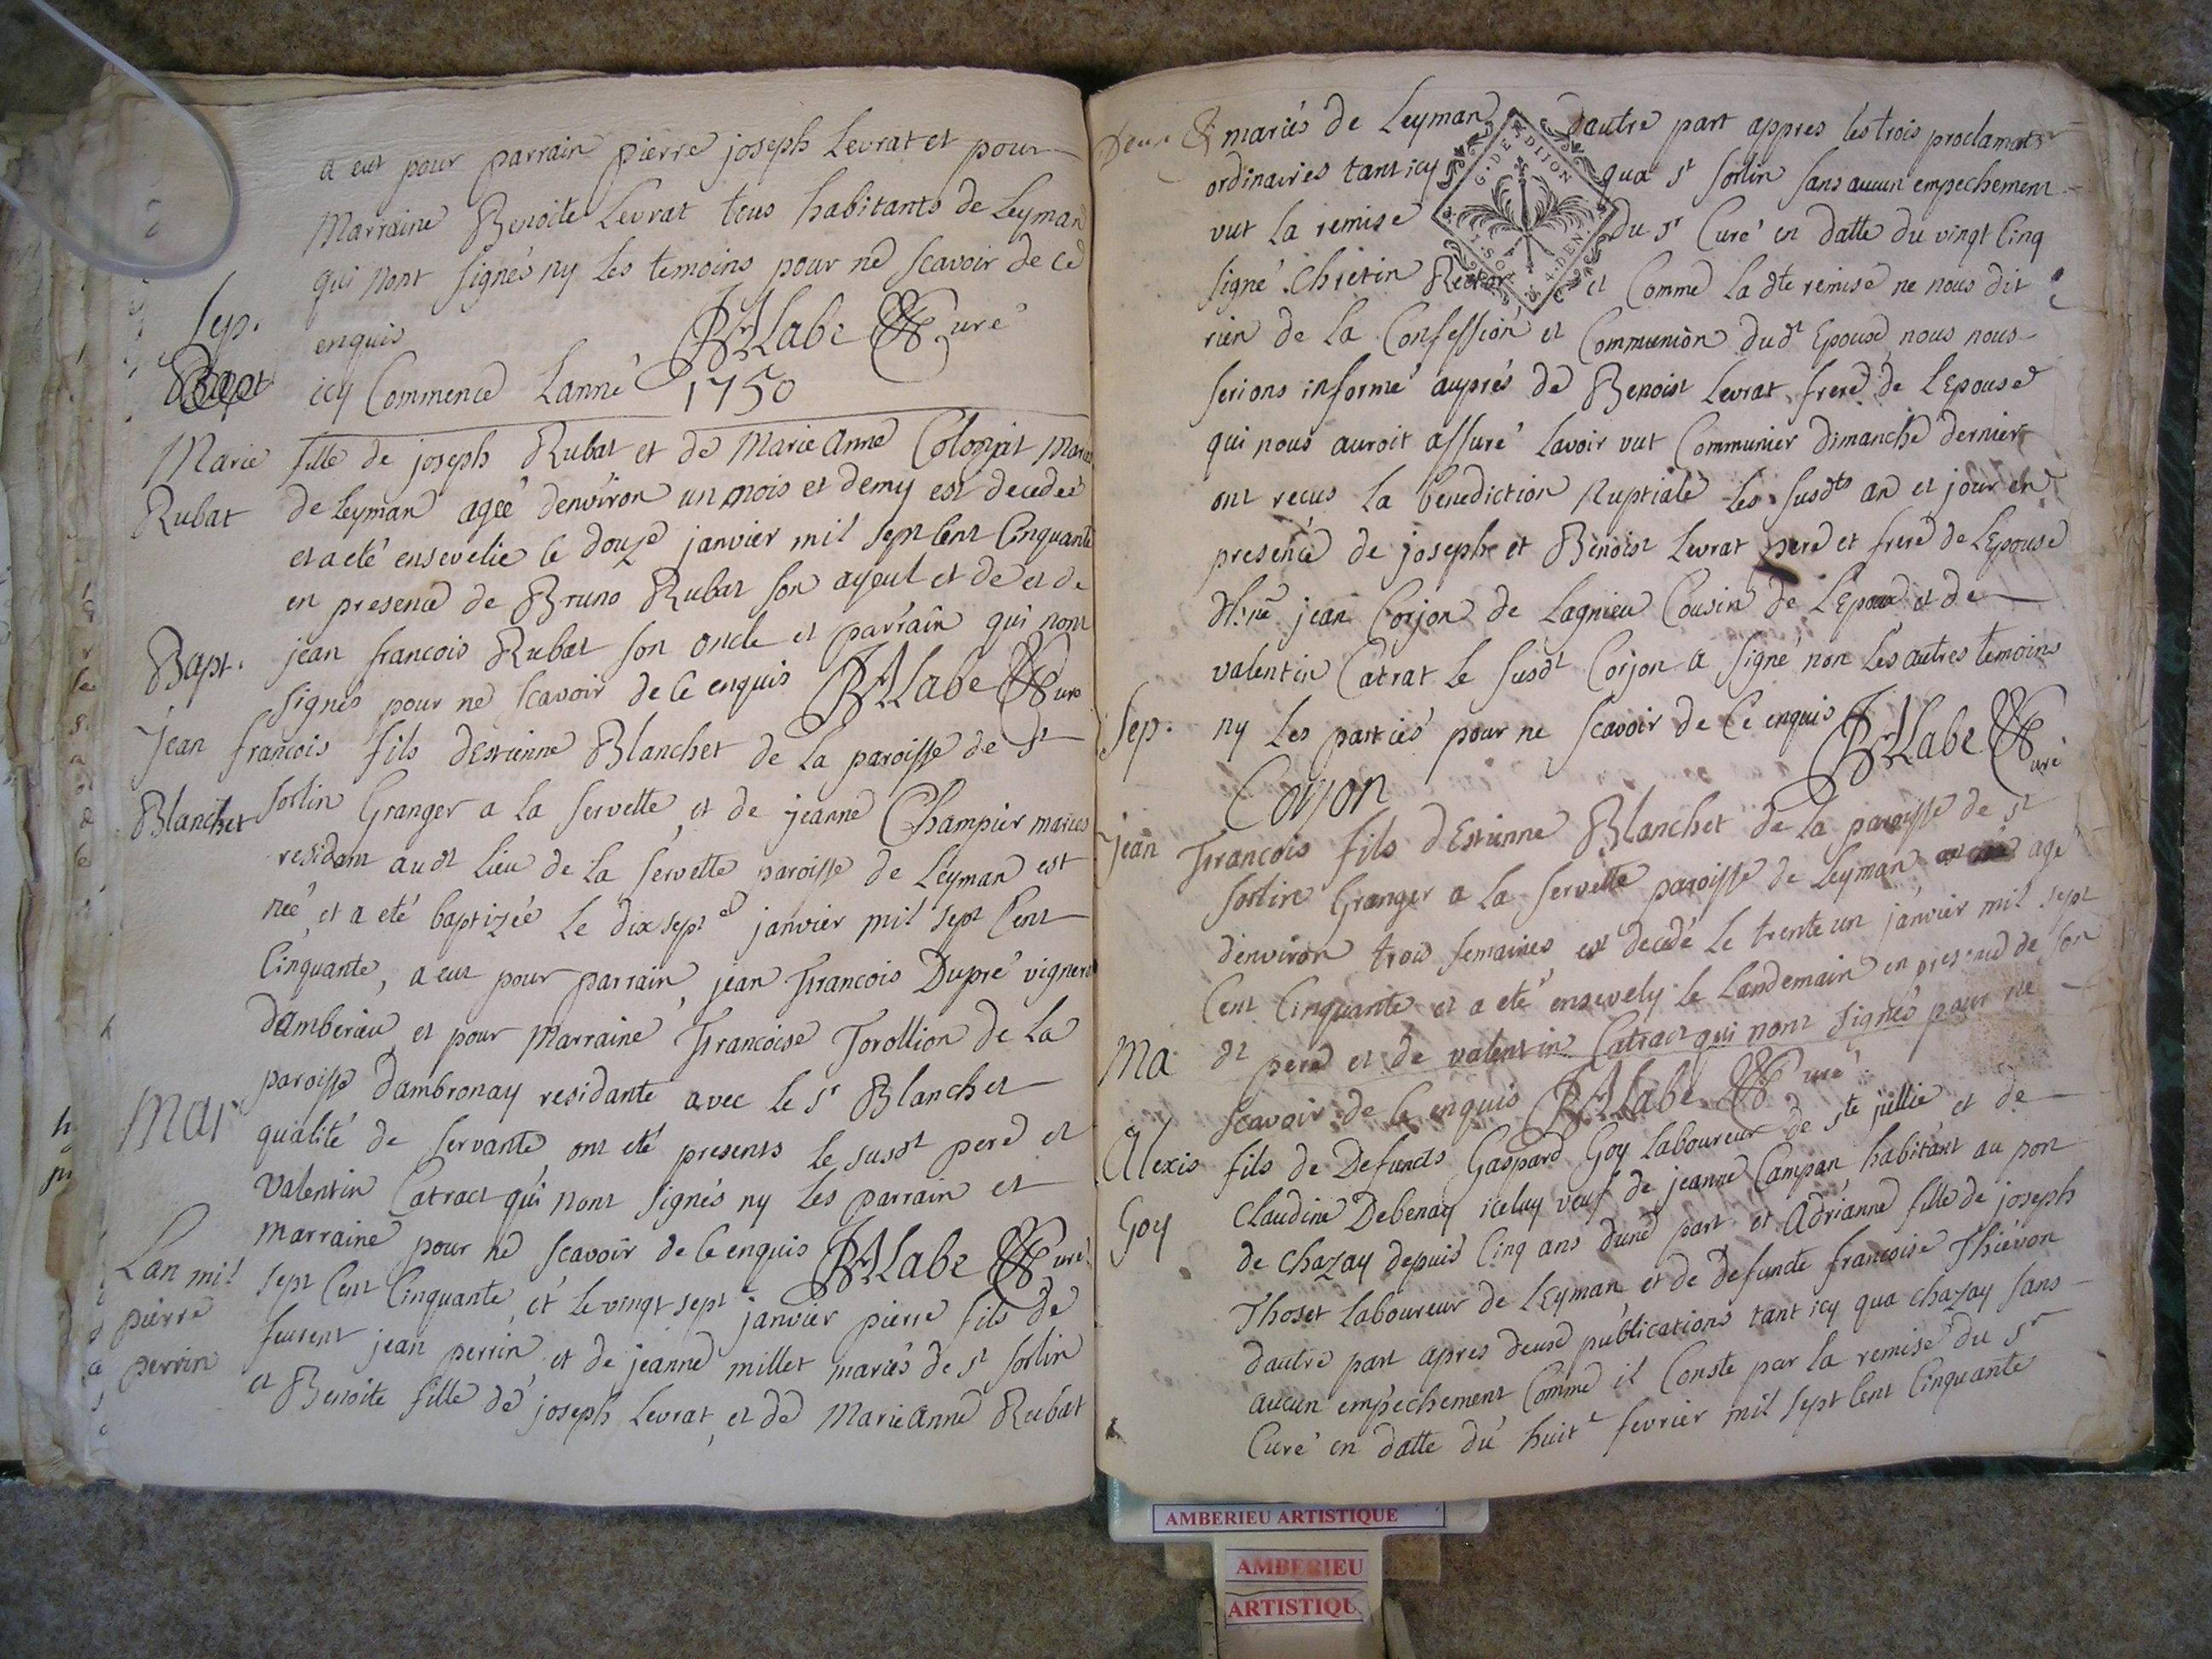 a eut pour parrain pierre joseph Levrat et pour
Marraine Benoite Levrat tous habitants de Leyman
qui nont signés ny les temoins pour ne scavoir de ce
enquis Labe Curé
Sep.
icy Commence Lanné 1750
Marie fille de joseph Rubat et de Marie Anne
Rubat de Leyman ageé denviron un mois et demy est decedeé
et a eté ensevelie le douze janvier mil sept Cent Cinquante
en presence de Bruno Rubat son ayeul et de et de
jean francois Rubat son oncle et parrain qui nont
signés pour ne scavoir de Ce enquis Labe Curé
Bapt.
jean francois fils dEstienne Blanchet de la paroisse de St
Blanchet Sorlin Granger a la servette et de jeanne Champier mariés
residant audt Lieu de la servette paroisse de Leyman est
neé et a eté baptizée le dix sept janvier mil sept Cent
Cinquante, a eut pour parrain jean francois Dupré vigneron
damberieu et pour marraine francoise Torollion de La
paroisse dambronay residante avec le Sr Blanchet
qualité de servante, ont eté presents le susdt pere et
valentin Catract qui nont signés ny les parrain et
marraine pour ne scavoir de Ce enquis Labe Curé
Mar
Lan mil sept Cent Cinquante et le vingt sept janvier pierre fils de
pierre feurent jean perrin et de jeanne millet mariés de St Sorlin
perrin et Benoite fille de joseph Levrat, et de Marie Anne Rubat
mariés de Leyman dautre part appres les trois proclamats
ordinaires tant icy qua St Sorlin sans aucun empechement
vut la remise du Sr Curé en datte du vingt Cinq
G. DE DIJON
signé Chretin et Comme la dte remise ne nous dit
rien de la Confession et Communion dudt Epoux nous nous
serions informé auprés de Benoist Levrat frere de lEpouse
qui nous auroit assuré lavoir vut Communier dimanche dernier
ont recus la benediction Nuptiale les susdts an et jour en
presence de joseph et Benoist Levrat pere et frere de lEpouse
jean Corjon de Lagnieu Cousin de lEpoux et de
valentin Catrat le susdt Corjon a signé non les autres temoins
ny les partiés pour ne scavoir de Ce enquis Labe Curé
Corjon
Sep.
jean francois fils dEstienne Blanchet de la paroisse de St
Sorlin Granger a la servette paroisse de Leyman agé
denviron trois semaines est decedé le trente un janvier mil sept
Cent Cinquante et a eté ensevely le Landemain en presence de son
dt pere et de valentin Catract qui nont signés pour ne
scavoir de Ce enquis Labe Curé
Ma
Alexis fils de Defuncts Gaspard Goy laboureur de Ste jullie et de
Goy Claudine Debenay iceluy veuf de jeanne Campan habitant au pont
de Chazay depuis Cinq ans dune part, et Adrianne fille de joseph
Thoset laboureur de Leyman et de Defuncte francoise Thievon
dautre part apres deux publications tant icy qua chazay sans
aucun empechement Comme il Conste par la remise du Sr
Curé en datte du huit fevrier mil sept Cent Cinquante
AMBERIEU ARTISTIQUE
AMBERIEU
ARTISTIQU